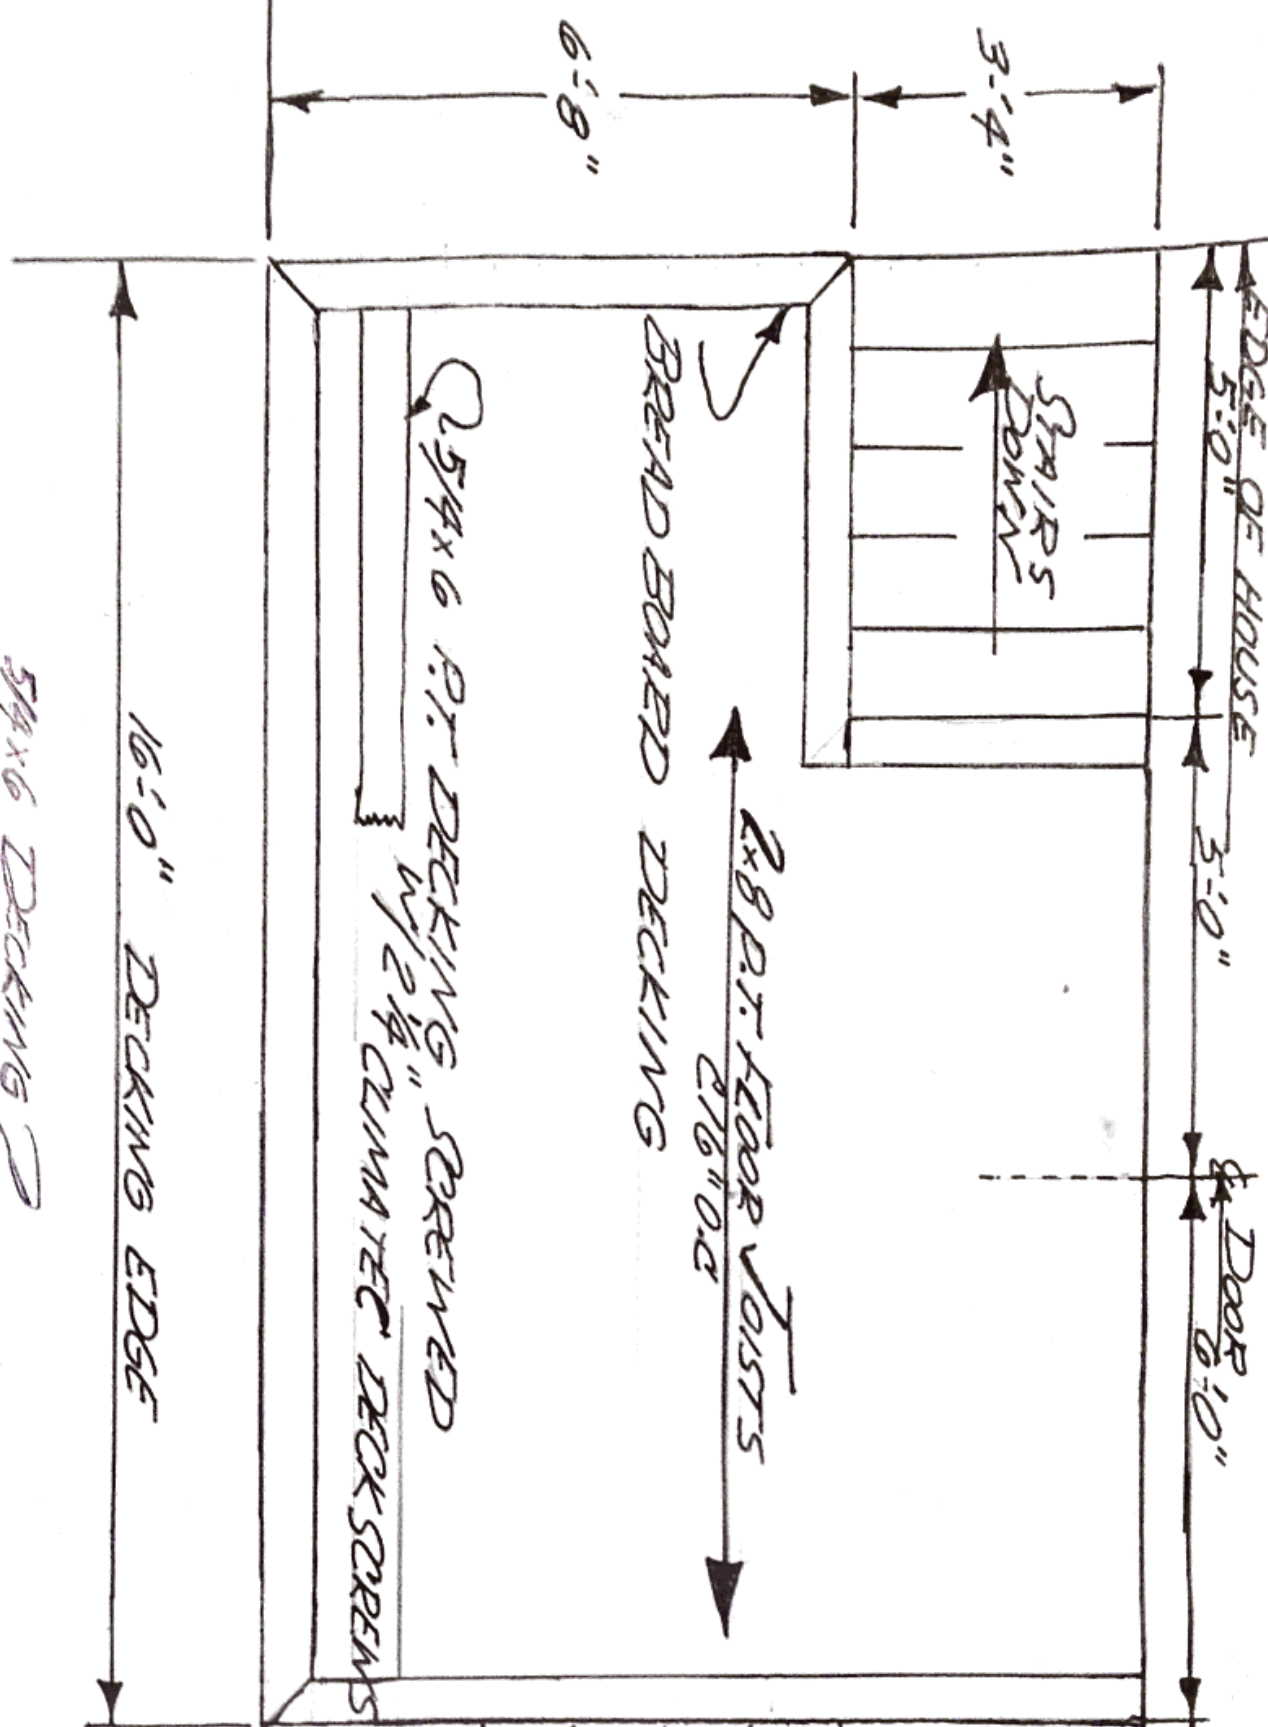 EDGE OF HOUSE
5'-0"
5'-0"
℄ DOOR
6'-0"
3'-4"
6'-8"
STAIRS
DOWN
2x8 P.T. FLOOR JOISTS
@16" O.C
BREADBOARD DECKING
5/4x6 P.T. DECKING SCREWED
W/ 2 1/4"
CLIMATEC DECK SCREWS
16'-0" DECKING EDGE
5/4x6 DECKING